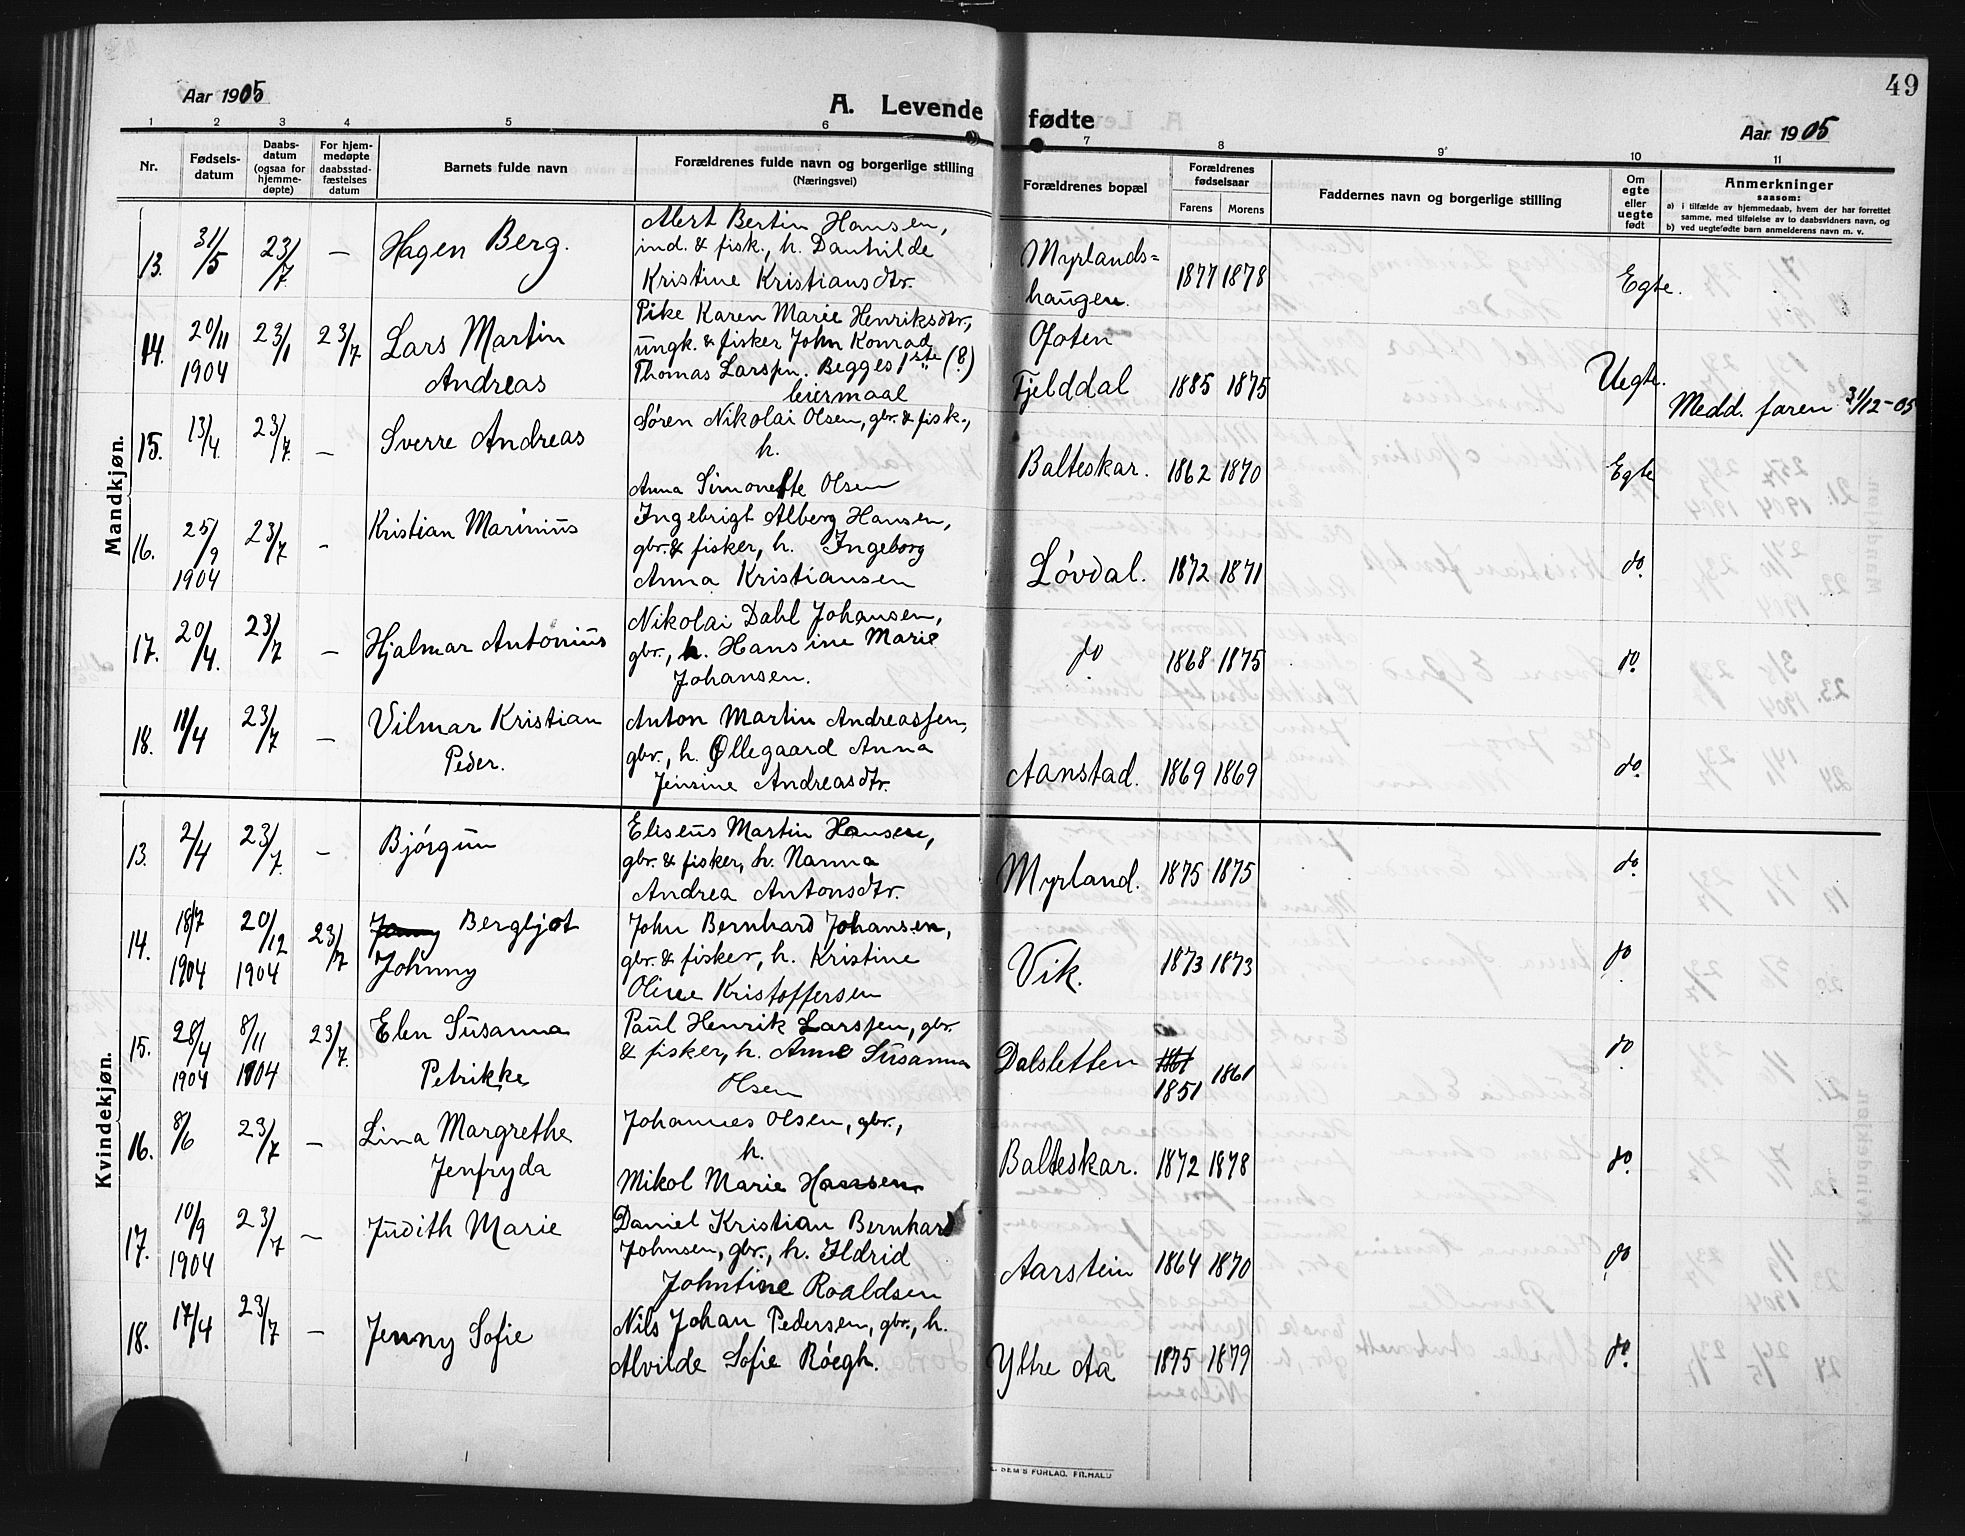 49
Aar 1905
A. Levende fødte
Aar 1905
1 2 3 4 5 6 7 8 9 10 11
Nr.
Fødsels-
datum
Daabs-
datum
(ogsaa for
hjemme-
døpte)
For hjem-
medøpte
daabsstad-
fæstelses
datum
Barnets fulde navn
Forældrenes fulde navn og borgerlige stilling
(Næringsvei)
Forældrenes bopæl
Forældrenes
fødselsaar
Farens Morens
Faddernes navn og borgerlige stilling
Om
egte
eller
uegte
født
Anmerkninger
saasom:
a) i tilfælde av hjemmedaab, hvem der har forrettet
samme, med tilføielse av to daabsvidners navn, og
b) ved uegtefødte barn anmelderens navn m. v.
Mandkjøn.
13. 31/5 23/7 — Hagen Berg.
Alert Bertin Hansen,
ind. & fisk., h. Danhilde
Kristine Kristiansdtr.
Myrlands=
haugen.
1877 1878 Egte.
14. 20/11 1904 23/1 23/7 Lars Martin
Andreas
Pike Karen Marie Henriksdtr,
ungk. & fisker John Konrad
Thomas Larssen. Begges 1ste (?)
leiermaal
Ofoten
Fjelddal
1885 1875 Uegte.
Medd. faren 31/12-05
15. 13/4 23/7 — Sverre Andreas
Søren Nikolai Olsen, gbr. & fisk.,
h.
Anna Simonette Olsen
Balteskar. 1862 1870 Egte
16. 25/9 1904 23/7 - Kristian Marinius
Ingebrigt Alberg Hansen,
gbr. & fisker, h. Ingeborg
Anna Kristiansen
Løvdal. 1872 1871 do.
17. 20/4. 23/7 — Hjalmar Antonius
Nikolai Dahl Johansen,
gbr., h. Hansine Marie
Johansen.
do 1868 1875 do.
18. 11/4 23/7 — Vilmar Kristian
Peder.
Anton Martin Andreassen,
gbr., h. Øllegaard Anna
Jensine Andreasdtr.
Aanstad. 1869 1869 do.
Kvindekjøn.
13. 2/4 23/7. — Bjørgun
Eliseus Martin Hansen,
gbr. & fisker, h. Nanna
Andrea Antonsdtr.
Myrland. 1875 1875 do.
14. 18/7 1904 20/12 1904 23/7 Jenny Bergljot
Johnny
John Bernhard Johansen,
gbr. & fisker, h. Kristine
Oline Kristoffersen
Vik. 1873 1873 do.
15. 28/4 1904 8/11 1904 23/7. Elen Susanna
Petrikke
Paul Henrik Larssen, gbr.
& fisker, h. Anne Susanna
Olsen
Dalsletten 1861 1851 1861 do.
16. 8/6 23/7 — Lina Margrethe
Jenfryda
Johannes Olsen, gbr.,
h.
Mikol Marie Hansen
Balteskar. 1872 1878 do.
17. 10/9 1904 23/7 — Judith Marie
Daniel Kristian Bernhard
Johnsen, gbr., h. Ildrid
Johntine Roaldsen
Aarstein 1864 1870 do
18. 17/4 23/7 — Jenny Sofie
Nils Johan Pedersen, gbr., h.
Alvilde Sofie Røegh.
Yttre Aa 1875 1879 do.
SEM'S FORLAG, FR.HALD